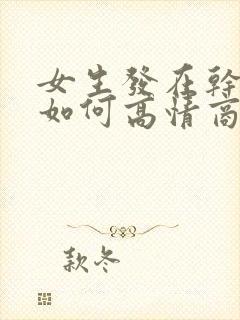 女生發在幹
如何高情商
款冬